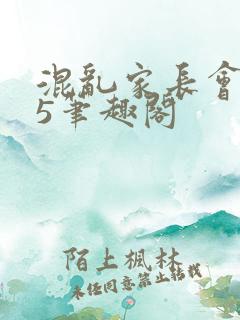 混亂家長會
5筆趣閣
陌上楓林
未经同意禁止转载